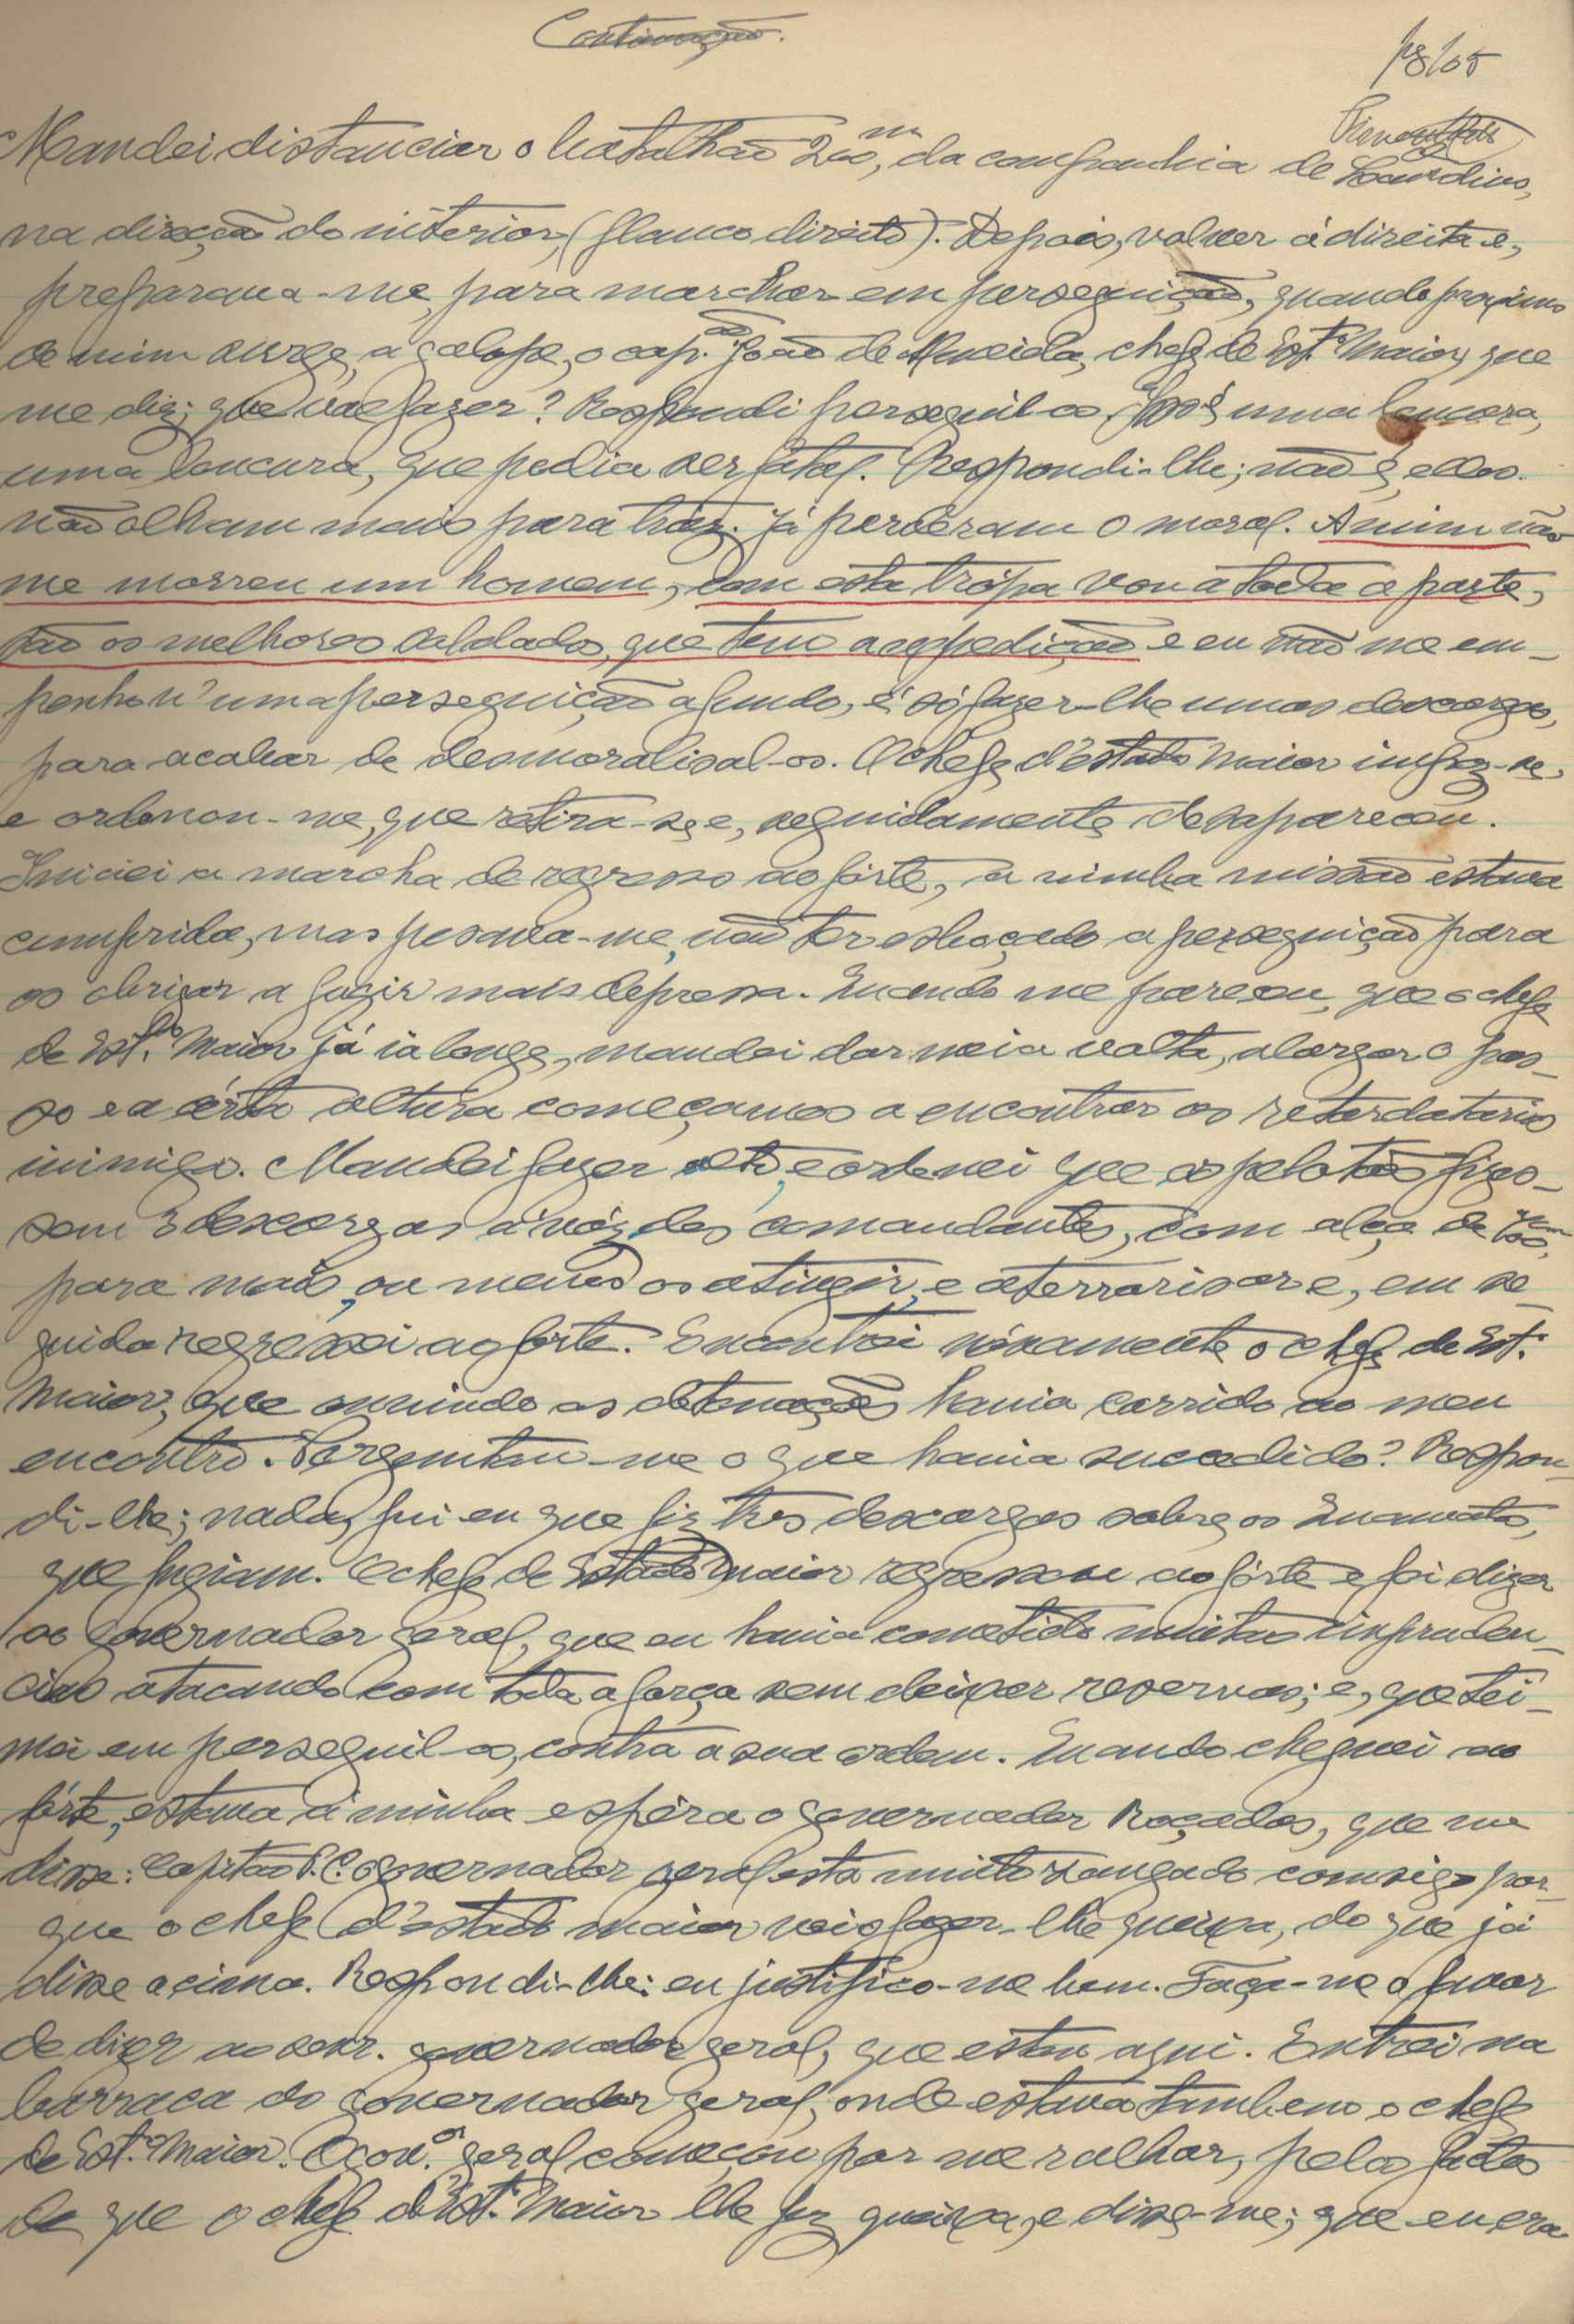 Continuação.
Mandei distanciar o batalhão 200m, da companhia de Landins,
na direcção do interior, (flanco direito). Depois, volver á direita e,
preparava-me, para marchar em perseguição, quando proximo
de mim surge, a galope, o cap.ão João de Almeida, chefe de Est.º Maior, que
me diz; que vae fazer? Respondi perseguil-os. Isso é uma loucura,
uma loucura, que pedia ser fatal. Respondi-lhe; não é, elles
não olham mais para traz. Já perderam o moral. A mim não
me morreu um homem, com esta trópa vou a toda a parte,
são os melhores soldados, que tem a expedição e eu não me em-
penho n'uma perseguição a fundo, é só fazer-lhe umas descargas,
para acabar de desmoralisal-os. O chefe d'estado Maior impoz-se,
e ordenou-me, que retira-se e, seguidamente desapareceu.
Iniciei a marcha de regresso ao fórte, a minha missão estava
cumprida, mas pesava-me, não ter esboçado a perseguição para
os obrigar a fugir mais depressa. Quando me pareceu, que o chefe
de Est.do Maior já ia longe, mandei dar meia volta, alargar o pas-
so e a cérta altura começamos a encontrar os retardatarios
inimigo. Mandei fazer alto, e ordenei que os pelotões fizes-
sem 3 descargas á vóz dos comandantes, com alça de
para mais, ou menos os atingir, e aterrorisar e, em se-
guida regressei ao forte. Encontrei nóvamente o chefe de Est.º
Maior, que ouvindo as detonações havia corrido ao meu
encontro. Perguntou-me o que havia sucedido? Respon-
di-lhe; nada, fui eu que fiz tres descargas sobre os Cuamatos,
que fugiam. O chefe de Estado Maior regressou ao fórte e foi dizer
ao governador geral, que eu havia cometido muitas impruden-
cias atacando com toda a força sem deixar reservas; e, que tei-
mei em perseguil-os, contra a sua ordem. Quando cheguei ao
fórte, estava á minha espéra o governador Roçadas, que me
disse: Capitão P.C. o governador geral esta muito zangado comsigo por-
que o chefe d'estado maior veio fazer-lhe queixa, do que já
disse acima. Respondi-lhe: eu justifico-me bem. Faça-me o favor
de dizer ao senr. governador geral, que estou aqui. Entrei na
barraca do governador geral, onde estava tambem o chefe
de Est.º Maior. O gov.or geral começou por me ralhar, pelos factos
de que o chefe d'Est.º Maior lhe fez queixa, e disse-me; que eu era